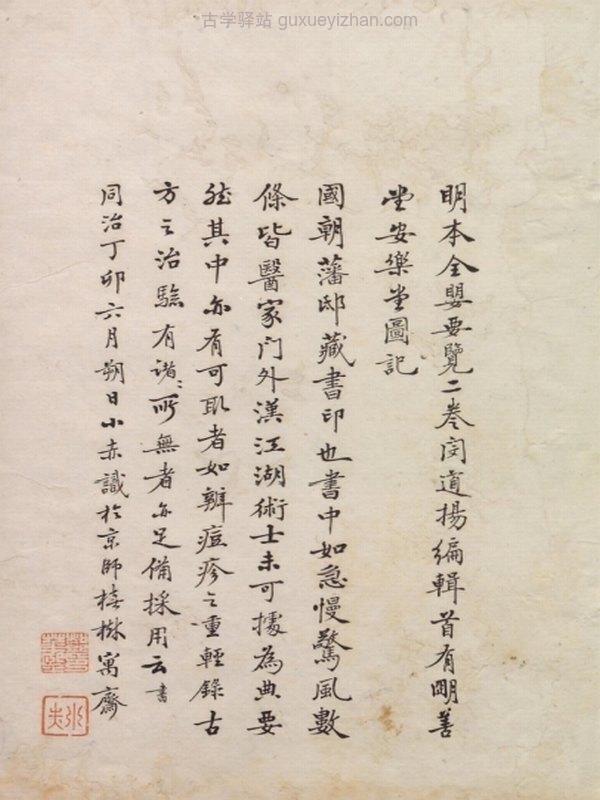 古学驿站 guxueyizhan.com
明本全嬰要覽二卷閔道揚編輯首有明善
堂安樂堂圖記
國朝藩邸藏書印也書中如急慢驚風數
條皆醫家門外漢江湖術士未可據為典要
然其中亦有可取者如辨痘疹之重輕錄古
方之治驗有諸書所無者亦足備採用云
同治丁卯六月朔日小赤識於京師椿樹寓齋